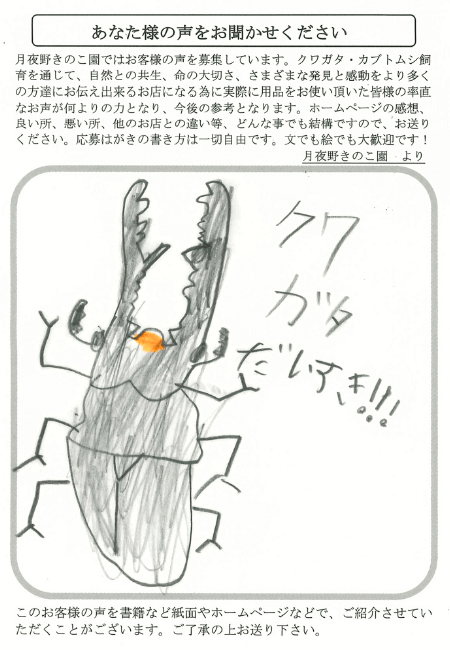 あなた様の声をお聞かせください
月夜野きのこ園ではお客様の声を募集しています。クワガタ・カブトムシ飼
育を通じて、自然との共生、命の大切さ、さまざまな発見と感動をより多く
の方達にお伝え出来るお店になる為に実際に用品をお使い頂いた皆様の率直
なお声が何よりの力となり、今後の参考となります。ホームページの感想、
良い所、悪い所、他のお店との違い等、どんな事でも結構ですので、お送り
ください。応募はがきの書き方は一切自由です。文でも絵でも大歓迎です！
月夜野きのこ園 より
クワ
ガタ
だいすき!!!
このお客様の声を書籍など紙面やホームページなどで、ご紹介させてい
ただくことがございます。ご了承の上お送り下さい。